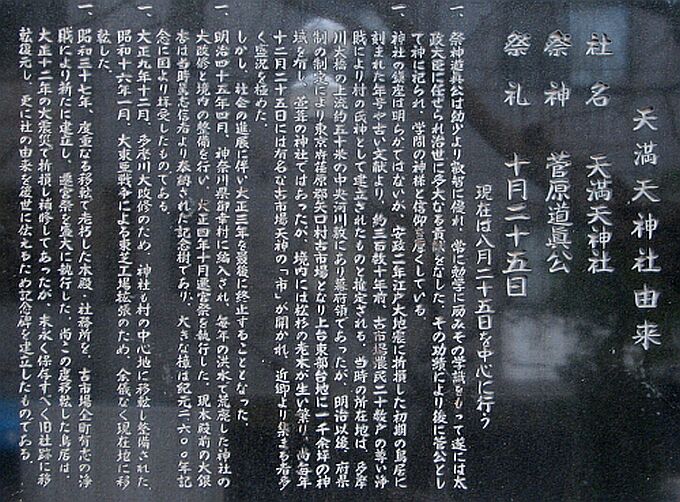 天満天神社由来
社名　天満天神社
祭神　菅原道眞公
祭礼　十月二十五日
現在は八月二十五日を中心に行う
一、祭神道眞公は幼少より叡智に優れ、常に勉学に励みその学識をもって遂には太
政大臣に任ぜられ治世に多大なる貢献をなした。その功績により後に菅公とし
て神に祀られ、学問の神様と信仰を厚くしている。
一、神社の鎮座は明らかではないが、安政二年江戸大地震に折損した初期の鳥居に
刻まれた年号や古い文献より、約三百数十年前、古市場農民二十数戸の尊い浄
財により村の氏神として建立されたものと推定される。当時の所在地は、多摩
川大橋の上流約五十米の中央河川敷にあり幕府領であったが、明治以後、府県
制の制定により東京府荏原郡矢口村古市場となり上台東部台地に一千余坪の神
域を有し、荏苒の神社ではあったが、境内には松杉の老木が生い繁り、尚毎年
十二月二十五日には有名な古市場天神の「市」が開かれ、近郷より集まる者多
く盛況を極めた。
しかし、社会の進展に伴い、大正三年を最後に終止することとなった。
一、明治四十五年四月、神奈川県御幸村に編入され、毎年の洪水で荒廃した神社の
大改修と境内の整備を行い、大正四年十月遷宮祭を執行した。現本殿前の大銀
杏は当時篤志信者より奉納された記念樹であり、大きな樟は紀元二六〇〇年記
念に国より拝受したものである。
一、大正九年十二月、多摩川大改修のため、神社も村の中心地に移転し整備された。
昭和十六年一月、大東亜戦争による東芝工場拡張のため、余儀なく現在地に移
転した。
一、昭和三十七年、度重なる移転で老朽した本殿・社務所を、古市場全町有志の浄
財により新たに建立し、遷宮祭を盛大に執行した。尚この度移転した鳥居は、
大正十二年の大震災で折損し補修してあったが、末永く保存すべく旧社跡に移
転復元し、更に社の由来を後世に伝えるため記念碑を建立したものである。